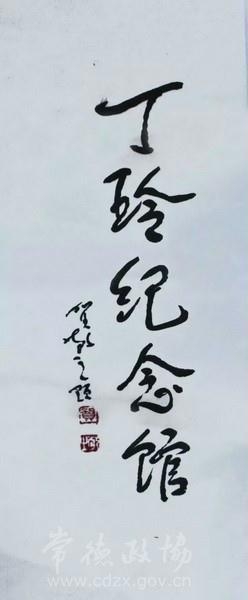 丁玲纪念馆
敬之题
常德政协
www.cdzx.gov.cn